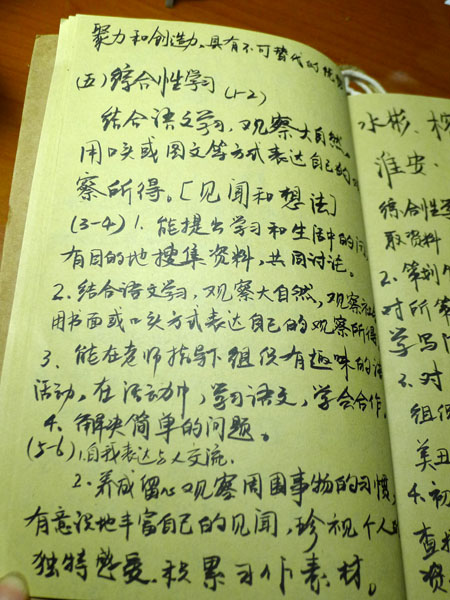 聚力和创造力,具有不可替代的优势
(五)综合性学习
(1-2)
结合语文学习,观察大自然,
用口头或图文等方式表达自己的
察所得。[见闻和想法]
(3-4) 1. 能提出学习和生活中的问
有目的地搜集资料,共同讨论。
2. 结合语文学习,观察大自然,观察社
用书面或口头方式表达自己的观察所得
3. 能在老师指导下组织有趣味的语
活动,在活动中,学习语文,学会合作。
4. 解决简单的问题。
(5-6) 1. 自我表达与人交流.
2. 养成留心观察周围事物的习惯,
有意识地丰富自己的见闻,珍视个人
独特感受.积累习作素材。
淮安.
综合性
取资料
2. 策划
对所策
学写
3. 对
组织
美丑
4. 初
查找
资